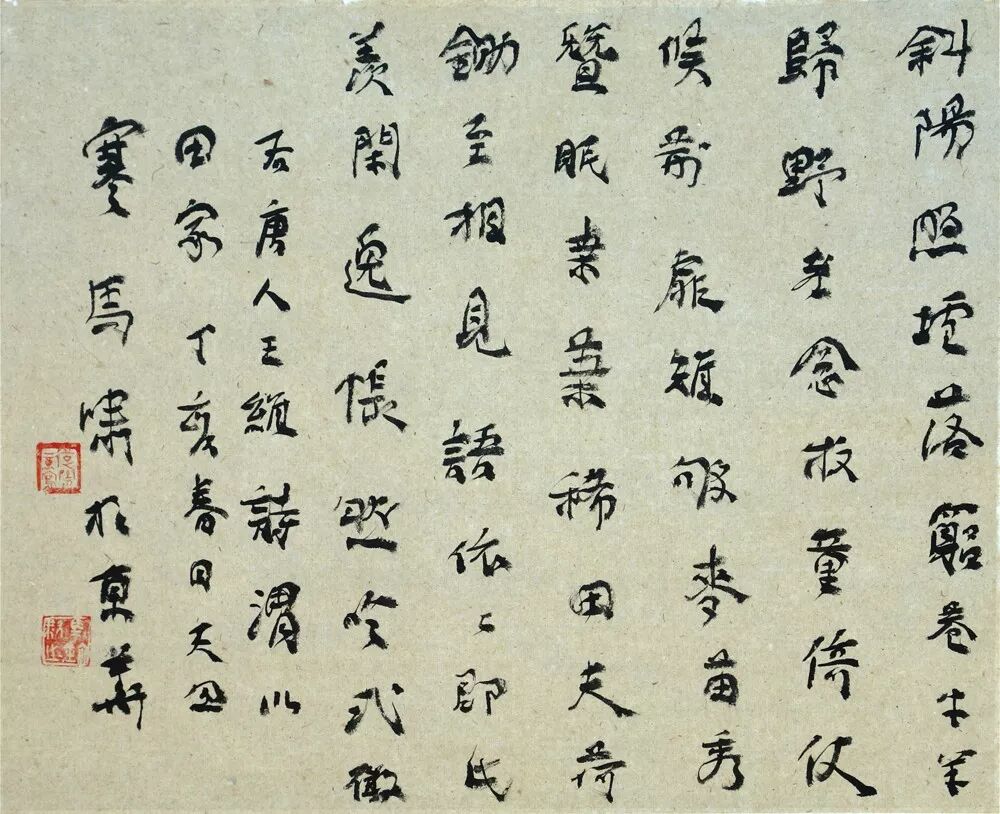 斜陽照墟落窮巷牛羊
歸野老念牧童倚仗
候荊扉雉雊麥苗秀
蠶眠桑葉稀田夫荷
鋤至相見語依〻即此
羨閑逸悵然吟式微
右唐人王維詩渭川
田家丁亥春日天忽
寒馬嘯於東華